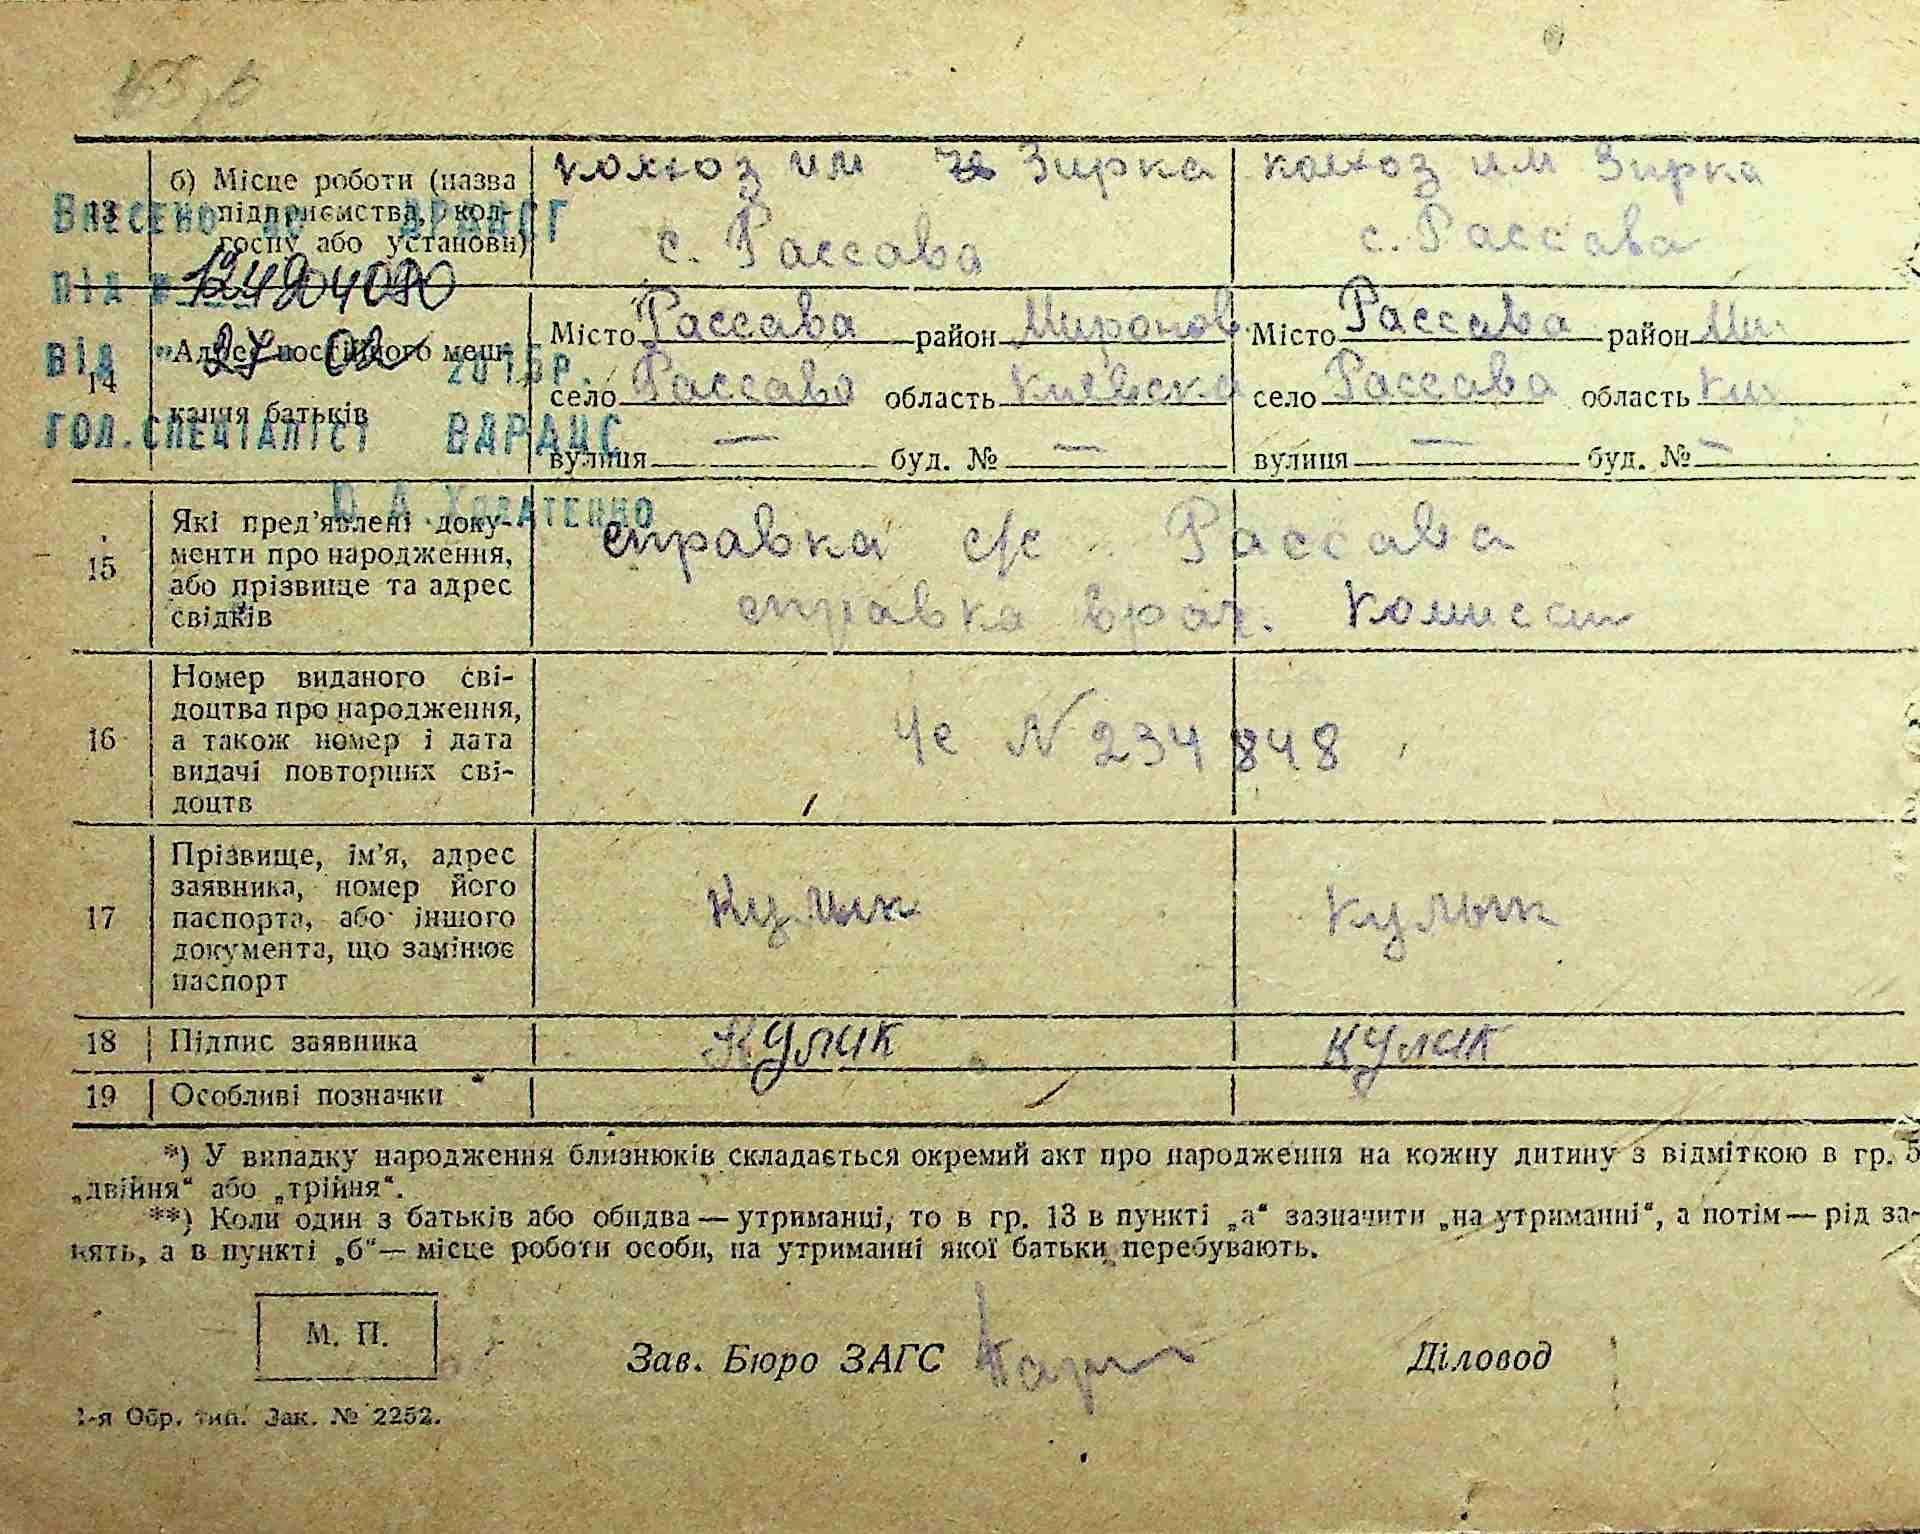 13 б) Місце роботи (назва підприємства, колгоспу або установи) колхоз им Зирка с. Рассава колхоз им Зирка с. Рассава
Внесено до ДРАЦСГ
під № 12404080
від "27" 02 2015р.
гол.спеціаліст ВДРАЦС
14 Адрес постійного мешкання батьків
Місто Рассава район Миронов. Місто Рассава район Ми.
село Рассава область Киевска село Рассава область Ки.
вулиця — буд. № — вулиця — буд. № —
15 Які пред'явлені документи про народження, або прізвище та адрес свідків
справка с/с Рассава
справка врач. Комиссии
16 Номер виданого свідоцтва про народження, а також номер і дата видачі повторних свідоцтв
Че N 234848
17 Прізвище, ім'я, адрес заявника, номер його паспорта, або іншого документа, що замінює паспорт
Кулык Кулык
18 Підпис заявника Кулик Кулик
19 Особливі позначки
*) У випадку народження близнюків складається окремий акт про народження на кожну дитину з відміткою в гр. 5
„двійня“ або „трійня“.
**) Коли один з батьків або обидва — утриманці, то в гр. 13 в пункті „а“ зазначити „на утриманні“, а потім — рід за-
нять, а в пункті „б“ — місце роботи особи, на утриманні якої батьки перебувають.
М. П.
Зав. Бюро ЗАГС Діловод
1-я Обр. тип. Зак. № 2252.